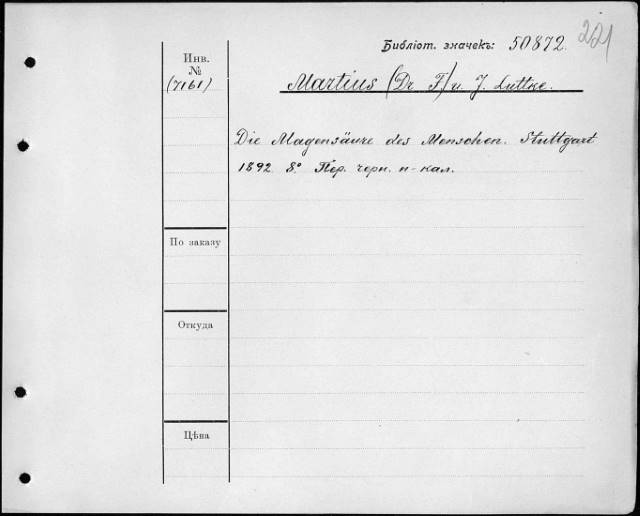 221
Библіот. значекъ: 50872.
Инв.
№
(7161)
Martius (Dr F.) u. J. Luttke.
Die Magensäure des Menschen. Stuttgart
1892. 8.° Пер. черн. н-кал.
По заказу
Откуда
Цѣна